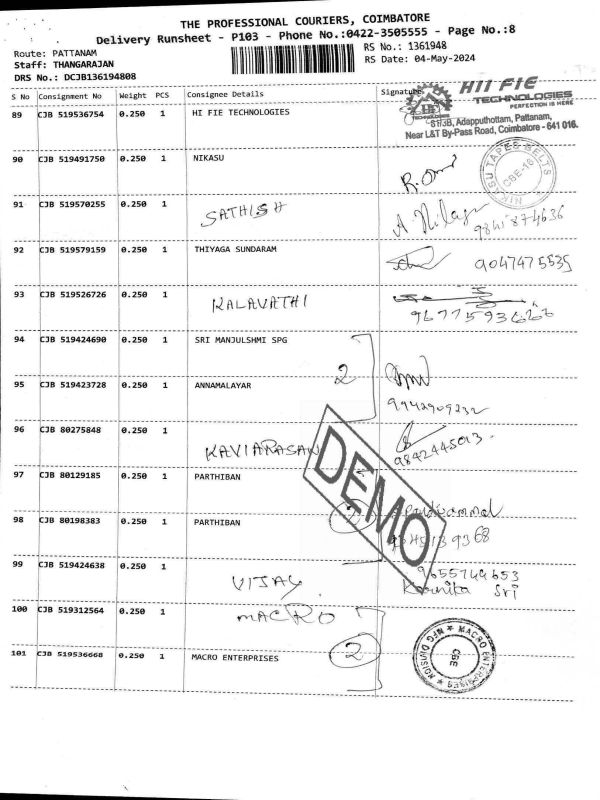 THE PROFESSIONAL COURIERS, COIMBATORE
Delivery Runsheet - P103 - Phone No.:0422-3505555 - Page No.:8
Route: PATTANAM
RS No.: 1361948
Staff: THANGARAJAN
RS Date: 04-May-2024
DRS No.: DCJB136194808
S No Consignment No Weight PCS Consignee Details Signature
HII FIE
TECHNOLOGIES
PERFECTION IS HERE
89 CJB 519536754 0.250 1 HI FIE TECHNOLOGIES
TECHNOLOGIES
81/3B, Adapputhottam, Pattanam,
Near L&T By-Pass Road, Coimbatore - 641 016.
90 CJB 519491750 0.250 1 NIKASU
NIKASU TAPES BELTS
CBE-16
91 CJB 519570255 0.250 1 SATHISH
92 CJB 519579159 0.250 1 THIYAGA SUNDARAM
9047475535
93 CJB 519526726 0.250 1 KALAVATHI
94 CJB 519424690 0.250 1 SRI MANJULSHMI SPG
2
95 CJB 519423728 0.250 1 ANNAMALAYAR
9942909232
96 CJB 80275848 0.250 1 KAVIARASAN
9892445013
97 CJB 80129185 0.250 1 PARTHIBAN
DEMO
98 CJB 80198383 0.250 1 PARTHIBAN 2
99 CJB 519424638 0.250 1 VIJAY
9655749653
Sri
100 CJB 519312564 0.250 1 MACRO
101 CJB 519536668 0.250 1 MACRO ENTERPRISES 2
MACRO ENTERPRISES
MFG DIVISION
CBE